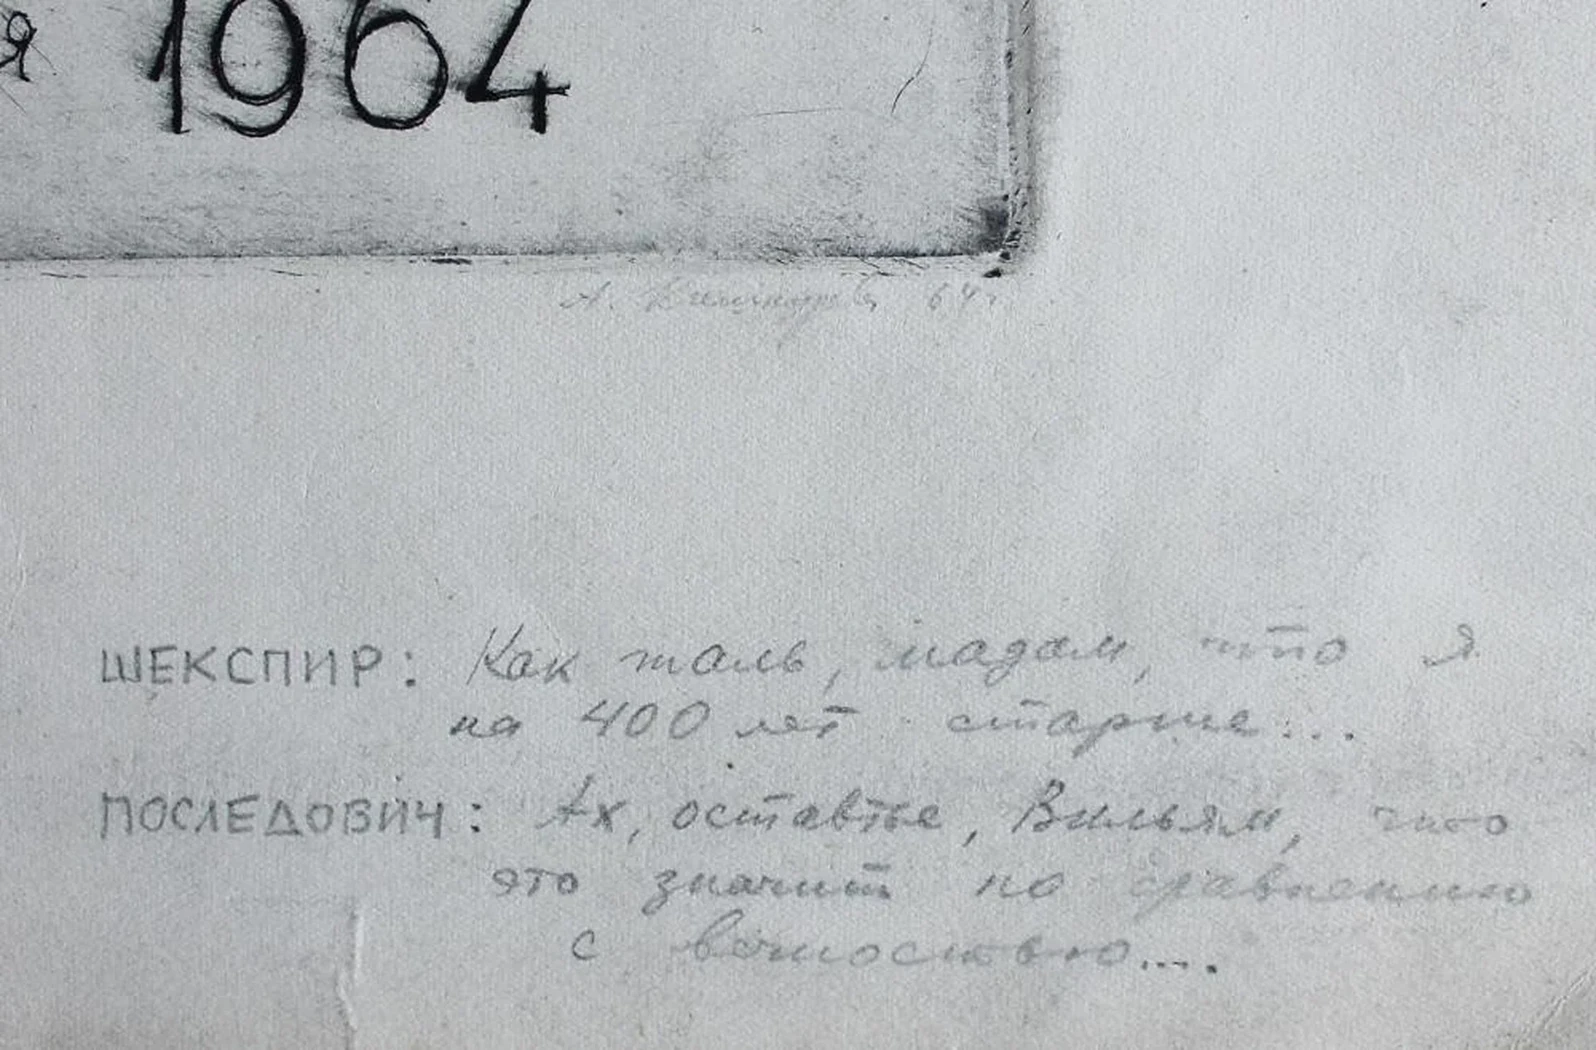 я 1964
А. 64 г
ШЕКСПИР: Как жаль, мадам, что я
на 400 лет старше...
ПОСЛЕДОВИЧ: Ах, оставьте, Вильям, что
это значит по сравнению
с вечностью....